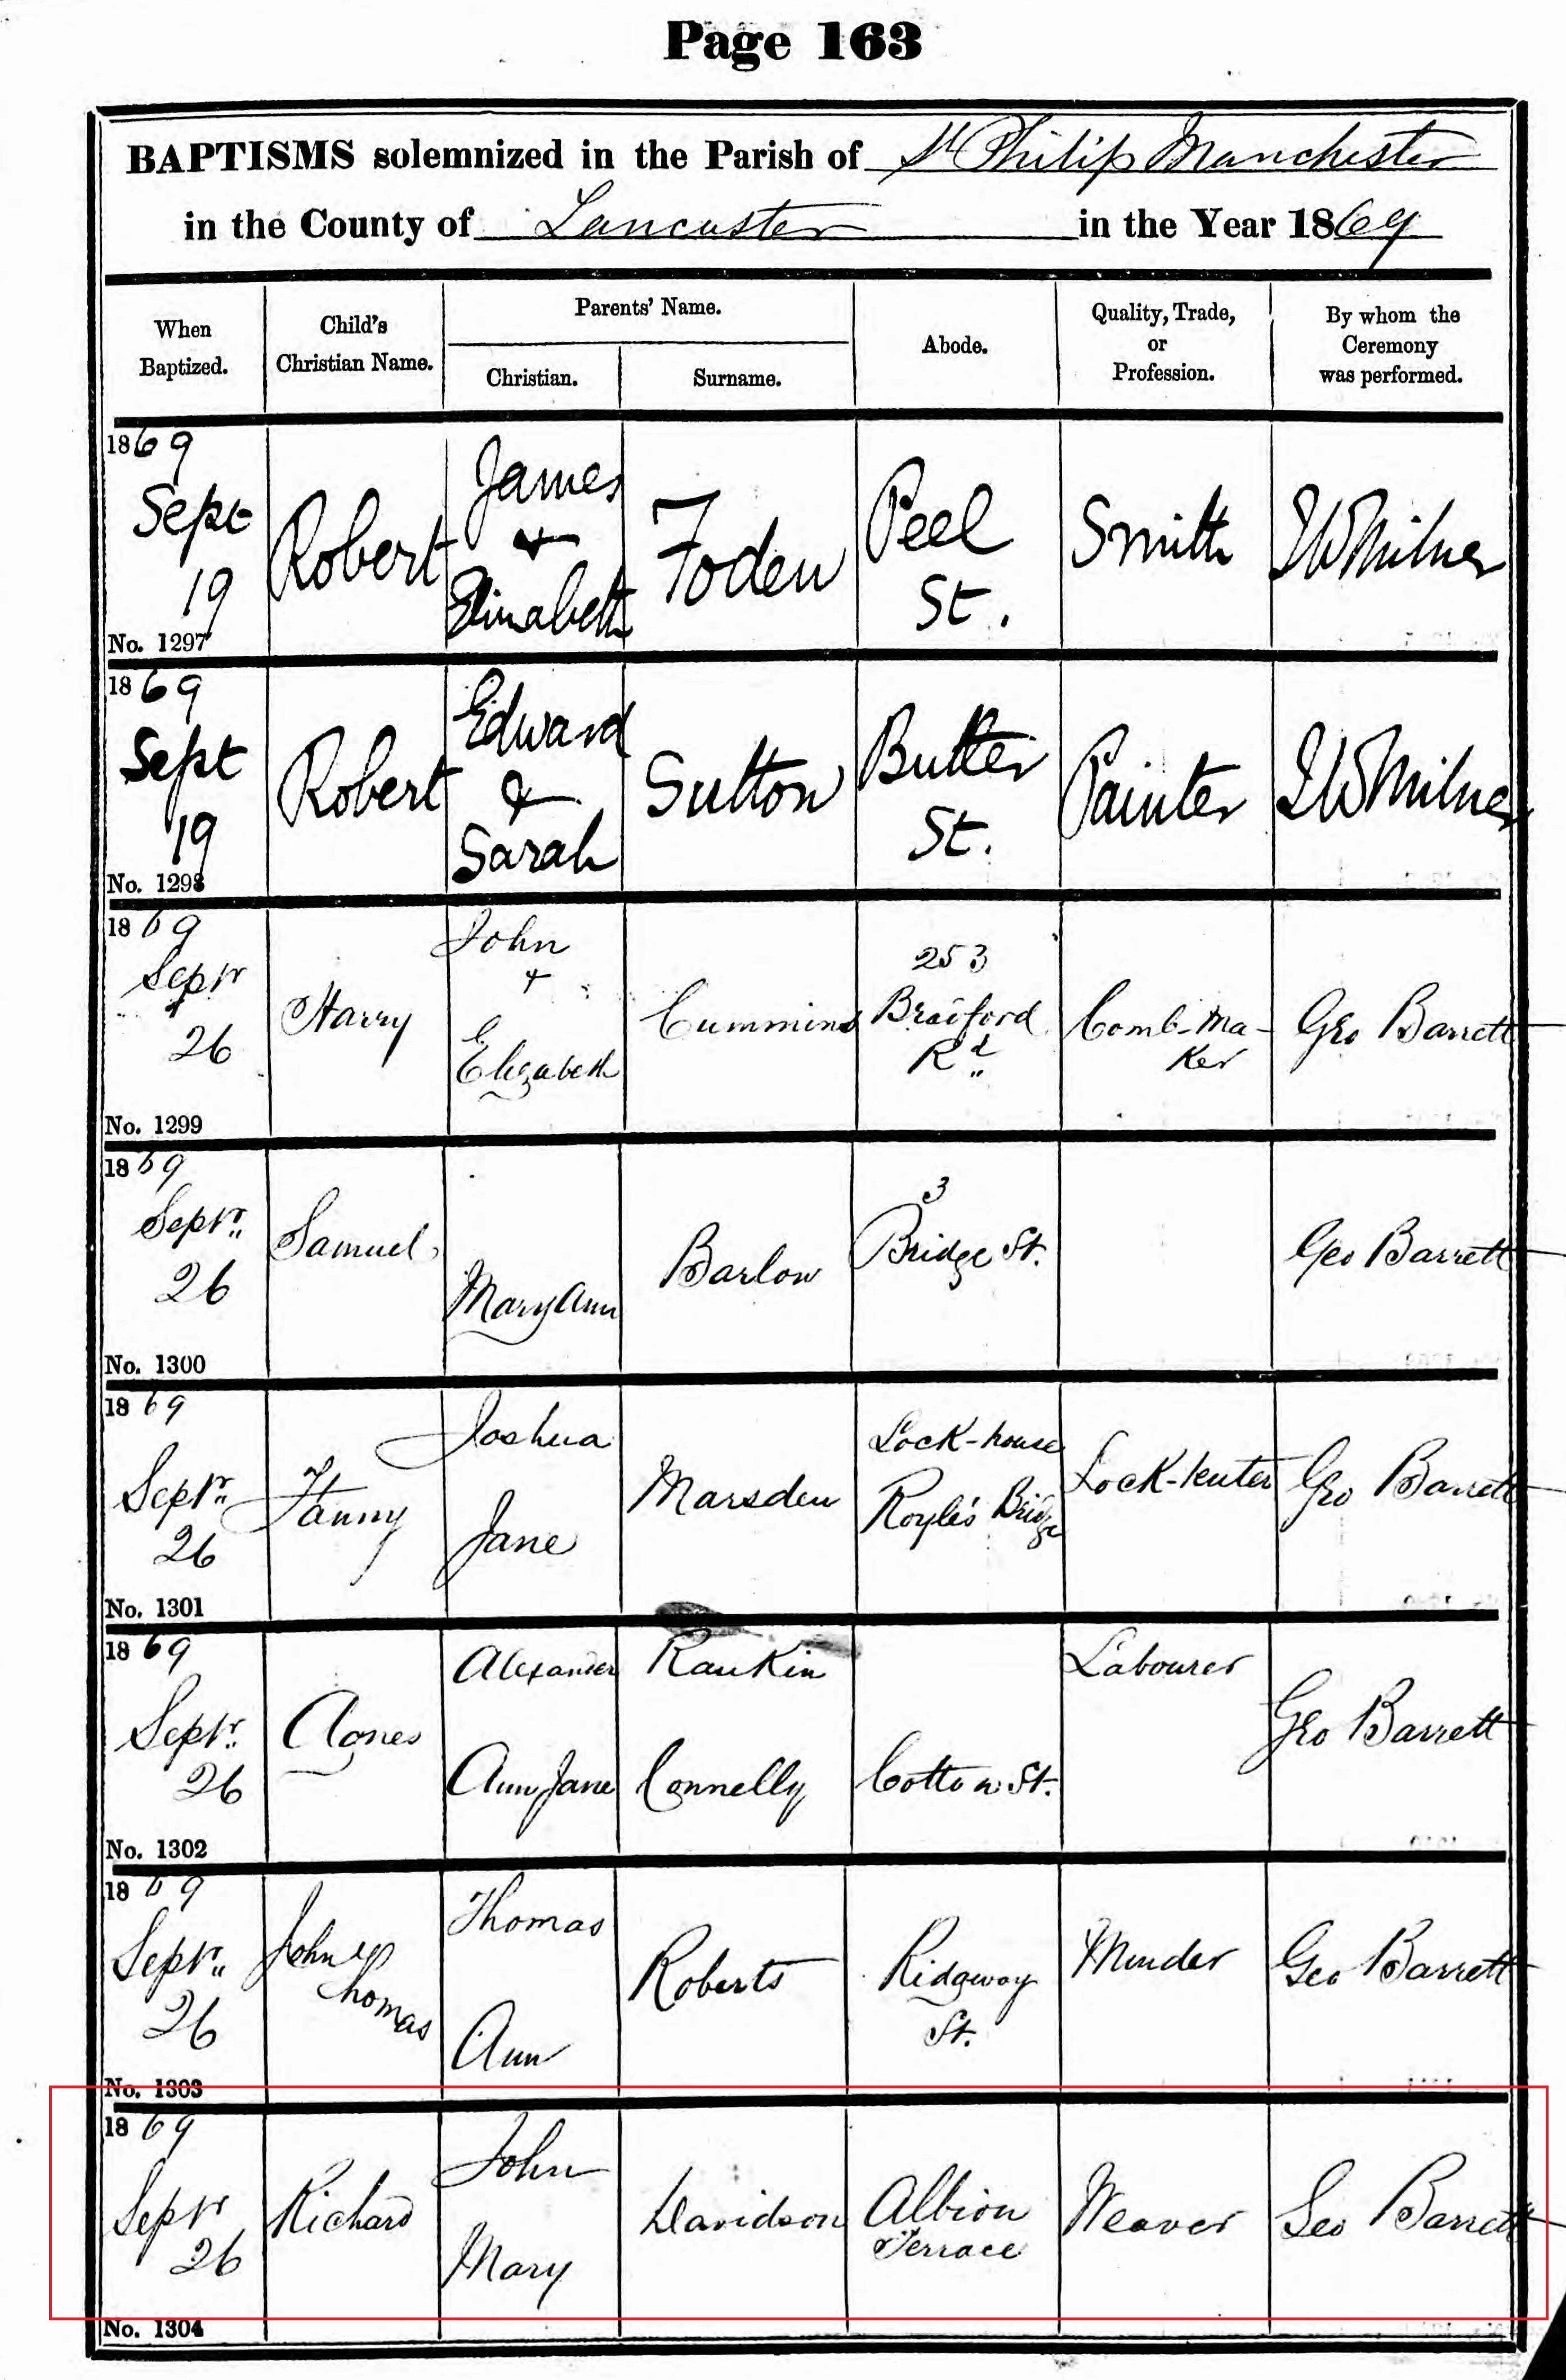 Page 163
BAPTISMS solemnized in the Parish of St Philip Manchester
in the County of Lancaster in the Year 1869
When Baptized.
Child's Christian Name.
Parents' Name.
Christian.
Surname.
Abode.
Quality, Trade, or Profession.
By whom the Ceremony was performed.
1869
Sept
19
No. 1297
Robert
James
&
Elizabeth
Foden
Peel
St.
Smith
JWMilner
1869
Sept
19
No. 1298
Robert
Edward
&
Sarah
Sutton
Butler
St.
Painter
JWMilner
1869
Sepr
26
No. 1299
Harry
John
+
Elizabeth
Cummins
253
Bradford
Rd
Comb-Ma-
ker
Geo Barrett
1869
Sepr.
26
No. 1300
Samuel
Mary Ann
Barlow
3
Bridge St.
Geo Barrett
1869
Sepr.
26
No. 1301
Fanny
Joshua
Jane
Marsden
Lock-house
Royle's Bridge
Lock-
Geo Barrett
1869
Sepr.
26
No. 1302
Agnes
Alexander
Ann Jane
Rankin
Connelly
Cotton St.
Labourer
Geo Barrett
1869
Sepr.
26
No. 1303
John
Thomas
Thomas
Ann
Roberts
Ridgway
St.
Minder
Geo Barrett
1869
Sepr
26
No. 1304
Richard
John
Mary
Davidson
Albion
Terrace
Weaver
Geo Barrett